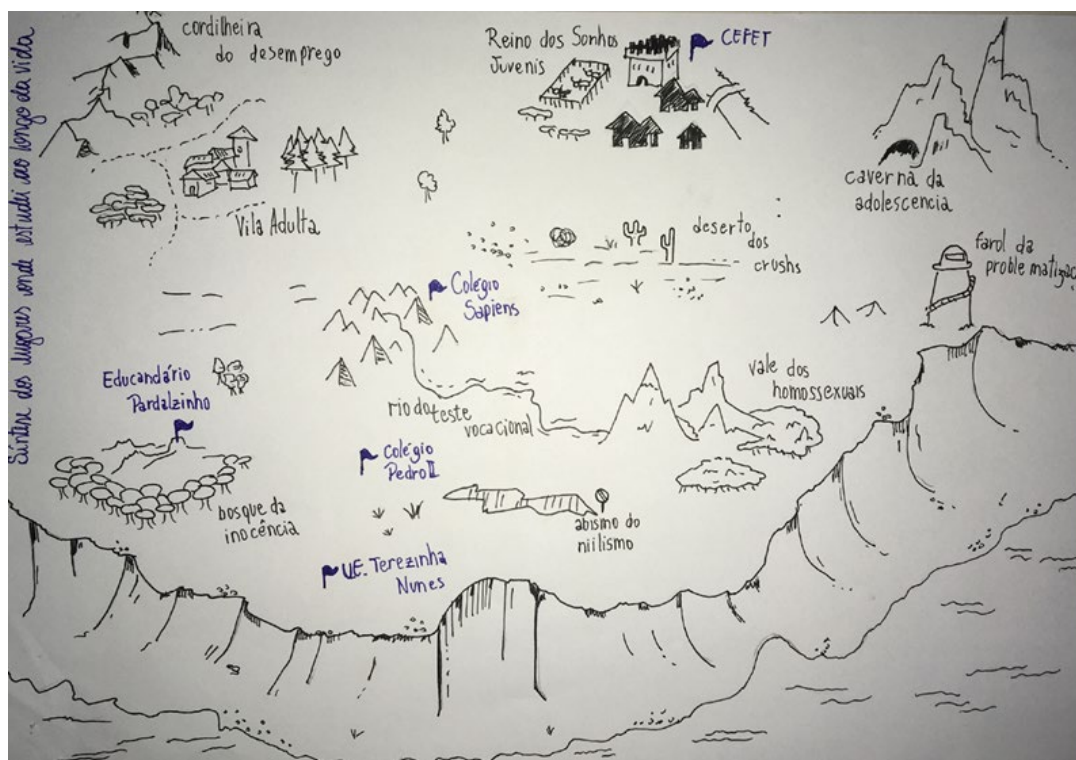 Síntese dos lugares onde estudei ao longo da vida
cordilheira
do desemprego
Reino dos Sonhos
Juvenis
CEFET
Vila Adulta
caverna da
adolescencia
deserto dos
crushs
farol da
problematizaç
Colégio
Sapiens
Educandário
Pardalzinho
rio do teste
vocacional
vale dos
homossexuais
Colégio
Pedro II
bosque da
inocência
abismo do
niilismo
U.E. Terezinha
Nunes